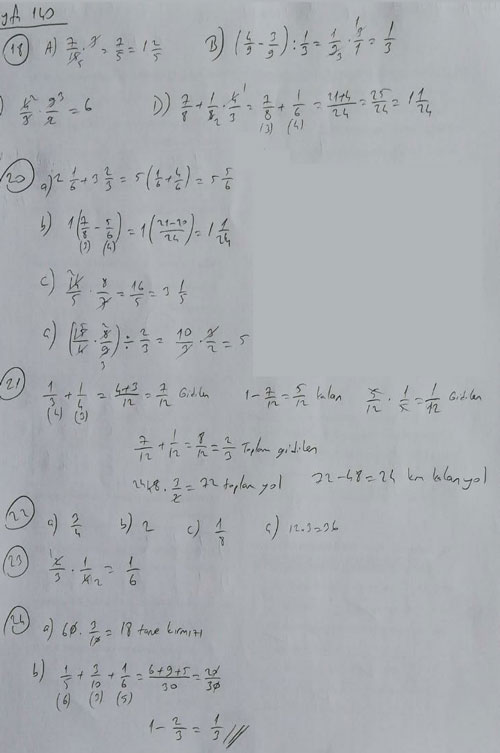 140
18 A) 7/15 · 3 = 7/5 = 1 2/5 B) (4/9 - 3/9) : 1/3 = 1/9 · 3/1 = 1/3
) 4/3 · 9/2 = 6 D) 7/8 + 1/8 · 4/3 = 7/8 + 1/6 = 21+4/24 = 25/24 = 1 1/24
(3) (4)
20 a) 2 1/6 + 3 2/3 = 5 (1/6 + 4/6) = 5 5/6
b) 1 (7/8 - 5/6) = 1 (21-20/24) = 1 1/24
(3) (4)
c) 14/5 · 8/7 = 16/5 = 3 1/5
ç) (15/4 · 8/9) ÷ 2/3 = 10/3 · 3/2 = 5
21 1/3 + 1/4 = 4+3/12 = 7/12 Gidilen 1 - 7/12 = 5/12 kalan 5/12 · 1/5 = 1/12 Gidilen
(4) (3)
7/12 + 1/12 = 8/12 = 2/3 Toplam gidilen
48 · 3/2 = 72 toplam yol 72 - 48 = 24 km kalan yol
22 a) 3/4 b) 2 c) 1/8 ç) 12.3 = 36
23 2/3 · 1/4 = 1/6
24 a) 60 · 3/10 = 18 tane kırmızı
b) 1/5 + 3/10 + 1/6 = 6+9+5/30 = 20/30
(6) (3) (5)
1 - 2/3 = 1/3